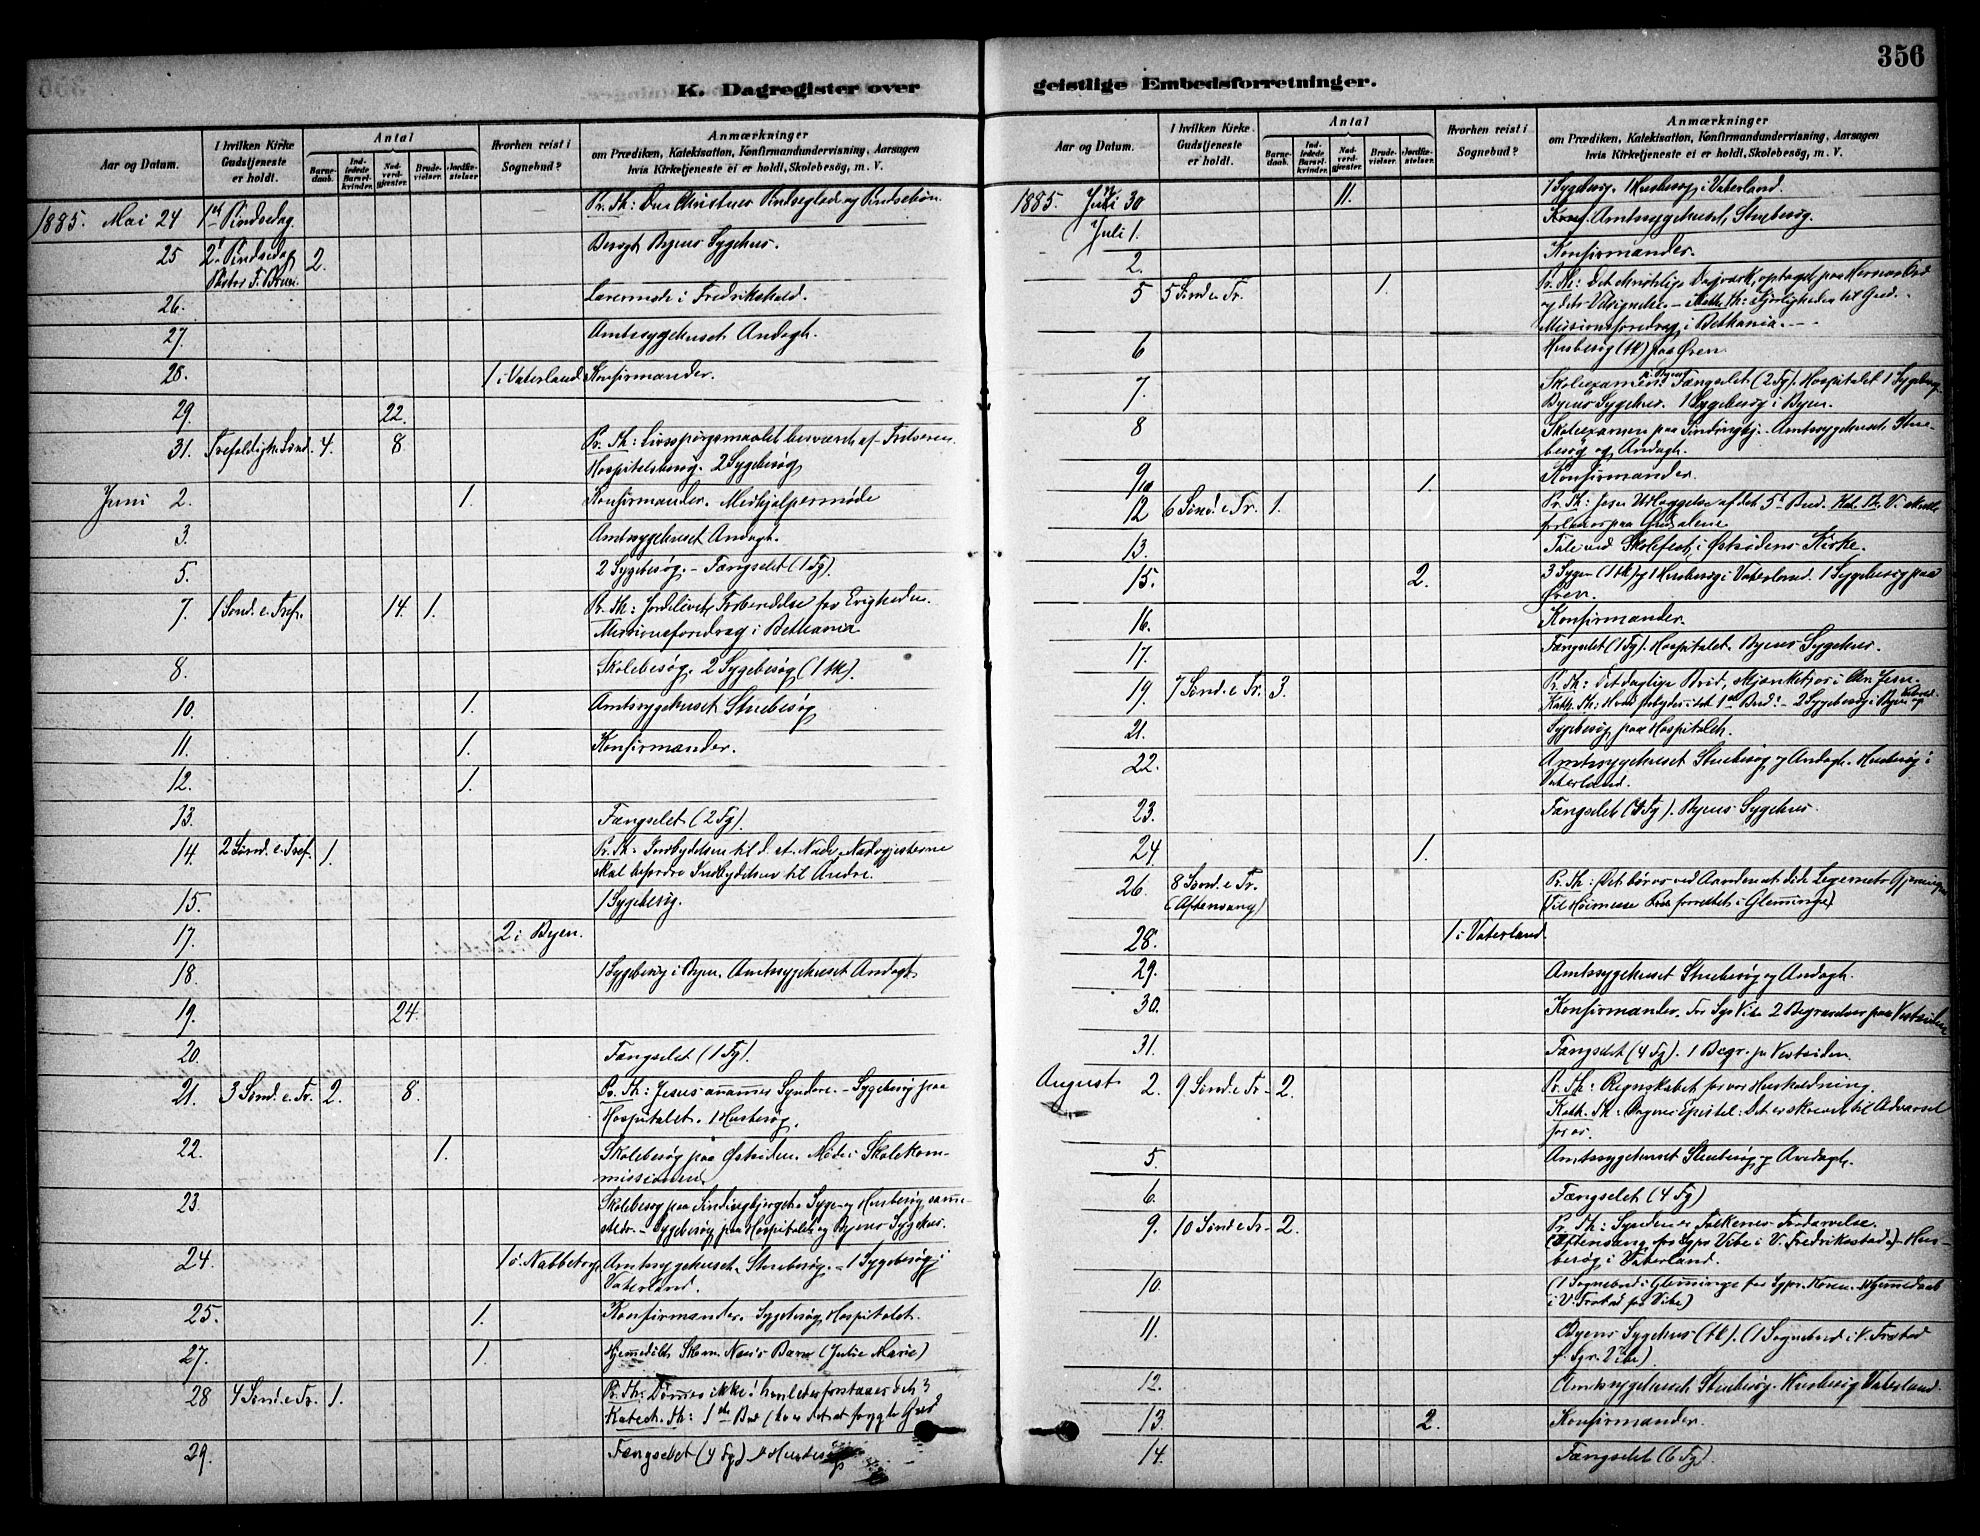 356
K. Dagregister over
geistlige Embedsforretninger.
Aar og Datum.
I hvilken Kirke Gudstjeneste er holdt.
Antal
Barnedaab.
Indledede Barselkvinder.
Nadverdgjester.
Brudevielser.
Jordfæstelser.
Hvorhen reist i Sognebud?
Anmærkninger
om Prædiken, Katekisation, Konfirmandundervisning, Aarsagen
hvis Kirketjeneste ei er holdt, Skolebesøg, m. V.
1885. Mai 24 1ste Pindsedag Pr. Th: Den Christnes Pindseglæde og Pindsebøn
25 2. Pindsedag 2. Besøgt Byens Sygehus.
Pastor F. Bruun
26. Læremøde i Fredrikshald.
27. Amtssygehuset Andagt.
28. 1 i Vaterland Konfirmander.
29. 22.
31. Trefoldigh. Sønd. 4. 8. Pr. Th: Livsspörgsmaalet besvaret af Frelseren.
Hospitalsbesøg. 2 Sygebesøg
Juni 2. 1. Konfirmander. Medhjælpermøde
3. Amtssygehuset Andagt.
5. 2 Sygebesøg. - Fængselet (1 Fg).
7. 1 Sønd. e. Tref. 14. 1. Pr. Th: Jordelivets Forberedelse for Evigheden.
Missionsforedrag i Bethania
8. Skolebesøg. 2 Sygebesøg (1 tk).
10. 1. Amtssygehuset Stuebesøg
11. 1. Konfirmander.
12. 1.
13. Fængselet (2 Fg).
14. 2 Sønd. e. Tref. 1. Pr. Th. Indbydelsen til d. st. Nadv. Nadvgjesterne
skal befordre Indbydelsen til Andre.
15. 1 Sygebesøg.
17. 2 i Byen.
18. 1 Sygebesøg i Byen. Amtssygehuset Andagt
19. 24.
20. Fængselet (1 Fg).
21. 3 Sønd. e. Tr. 2. 8. Pr. Th: Jesus annammer Syndere. - Sygebesøg paa
Hospitalet. 1 Husbesøg.
22. 1. Skolebesøg paa Østsiden. Møde i Skolekommissionen
23. Skolebesøg paa Sindingbjerget. Syge- og Husbesøg sammesteds. - Sygebesøg paa Hospitalet og Byens Sygehus.
24. 1 Nabbetorp Amtssygehuset Stuebesøg. - 1 Sygebesøg i
Vaterland.
25. 1. Konfirmander. Sygebesøg Hospitalet.
27. 1. Hjemmedøbt Barn (Julie Marie)
28 4 Sønd. e. Tr. 1. Pr. Th: Dømmer ikke! hvorledes forstaaes det?
Katech. Th: 1ste Bud (hvad det at frygte Gud?
29. Fængselet (4 Fg) Husbesøg
Aar og Datum.
I hvilken Kirke Gudstjeneste er holdt.
Antal
Barnedaab.
Indledede Barselkvinder.
Nadverdgjester.
Brudevielser.
Jordfæstelser.
Hvorhen reist i Sognebud?
Anmærkninger
om Prædiken, Katekisation, Konfirmandundervisning, Aarsagen
hvis Kirketjeneste ei er holdt, Skolebesøg, m. V.
1885. Juni 30 11. 1 Sygebesøg. 1 Husbesøg i Vaterland.
Juli 1. Amtssygehuset, Stuebesøg
2. Konfirmander.
5 5 Sønd e Tr. 1. Pr. Th: Det christelige Dagværk, optaget paa Herrens Ord
og dets Velsignelse. - Kath. Th: Kjærligheden til Gud. -
Missionsforedrag i Bethania. -
6 Husbesøg (tk) paa Øren
7. Skoleexamen. Fængselet (2 Fg). Hospitalet 1 Sygebesøg.
Byens Sygehus. 1 Sygebesøg i Byen.
8 Skoleexamen paa Sindingbj. - Amtssygehuset Stuebesøg og Andagt.
9/10 1. Konfirmander.
12 6 Sønd. e Tr. 1. Pr. Th: Jesu Udlæggelse af det 5te Bud. Kat. Th. Vi skulle
forlade os paa Gud alene
13. Tale ved Skolefest i Østsidens Kirke.
15. 2. 3 Syge- (1 tk) og 1 Husbesøg i Vaterland. 1 Sygebesøg paa
Øren
16. Konfirmander.
17. Fængselet (1 Fg). Hospitalet. Byens Sygehus.
19. 7 Sønd. e Tr. 3. Pr. Th: Det daglige Brød, skjænket os i den Jesu
Kath. Th: Hvad forbydes i det 1ste Bud? - 2 Sygebesøg i Byen og Vaterl.
21. Sygebesøg paa Hospitalet.
22. Amtssygehuset Stuebesøg og Andagt. Husbesøg i
Vaterland.
23. Fængselet (4 Fg). Byens Sygehus
24 1.
26. 8 Sønd. e Tr. Pr. Th: Det bør os ved Aanden at døde Legemets Gjerninger
(Aftensang) (Til Høimesse forrettet i Glemminge)
28. 1 i Vaterland.
29. Amtssygehuset Stuebesøg og Andagt.
30. Konfirmander. For Sgpr Vibe 2 Begravelser paa Vestsiden
31. Fængselet (4 Fg). 1 Begr. på Vestsiden.
August 2. 9 Sønd. e Tr 2. Pr. Th: Regnskabet for vor Husholdning.
Kath. Th: Dagens Epistel: Det er skrevet til Advarsel
for os.
5. Amtssygehuset Stuebesøg og Andagt.
6. Fængselet (4 Fg)
9. 10 Sønd e Tr 2. Pr. Th: Synden er Folkenes Fordærvelse.
(Aftensang for Sgpr Vibe i V. Fredriksstad) - Husbesøg i Vaterland.
10. (1 Sognebud i Glemminge for Sgpr. Hjemmedaab
i V. Frstad for Vibe)
11. Byens Sygehus (tk). (1 Sognebud i V. Frstad
f. Sgr. Vibe).
12. Amtssygehuset Stuebesøg. Husbesøg Vaterland
13. 2. Konfirmander.
14. Fængselet (6 Fg)